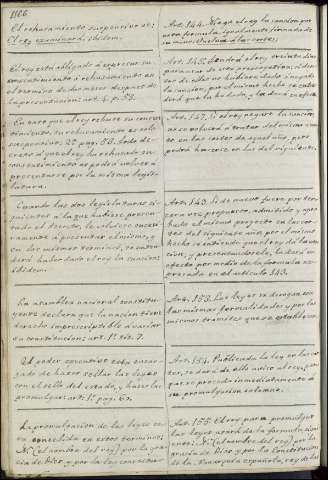 1106
El rehusamiento suspensivo es:
El rey examinará, ibidem.
El rey está obligado á expresar su
consentimiento ó rehusamiento en
el termino de dos meses despues de
la presentacion: art. 4. p. 53.
En caso que el rey rehuse su consen-
timiento, su rehusamiento es solo
suspensivo: 2º pag. 53. Todo de-
creto á que el rey ha rehusado su
consentimiento no podrá volver á
presentarse por la misma legis-
latura.
Cuando las dos legislaturas si-
guientes á la que hubiese presen-
tado el decreto, le vuelven sucesi-
vamente á presentar el mismo, y
en los mismos terminos, se enten-
derá haber dado el rey la sancion:
ibidem.
La asamblea nacional constitu-
yente declara que la nacion tiene
derecho imprescriptible á variar
su constitucion: art. 1º tit. 7.
El poder executivo está encar-
gado de hacer sellar las leyes
con el sello del estado, y hacerlas
promulgar: art. 1º pag. 60.
La promulgacion de las leyes se-
rá concebida en estos terminos:
N. (el nombre del rey) por la gra-
cia de Dios, y por la ley constitu-
Art. 144. Niega el rey la sancion por
esta formula, igualmente firmada de
su mano: Vuelva á las cortes;
Art. 145. Tendrá el rey treinta dias
para usar de esta prerogativa: si den-
tro de ellos no hubiere dado ó negado
la sancion, por el mismo hecho se enten-
derá que la ha dado, y la dará en efecto.
Art. 147. Si el rey negare la sancion,
no se volverá á tratar del mismo asun-
to en las cortes de aquel año; pero
podrá hacerse en las del siguiente.
Art. 149. Si de nuevo fuere por ter-
cera vez propuesto, admitido, y apro-
bado el mismo proyecto en las cor-
tes del siguiente año, por el mismo
hecho se entiende que el rey dá la san-
cion; y presentandosele, la dará en
efecto por medio de la formula ex-
presada en el articulo 143.
Art. 153. Las leyes se derogan con
las mismas formalidades y por los
mismos tramites que se establecen.
Art. 154. Publicada la ley en las cor-
tes, se dará de ello aviso al rey, para
que se proceda inmediatamente á
su promulgacion solemne.
Art. 155. El rey para promulgar
las leyes usará de la formula sigui-
ente: N. (el nombre del rey) por la
gracia de Dios, y por la Constitucion
de la Monarquia española, rey de las